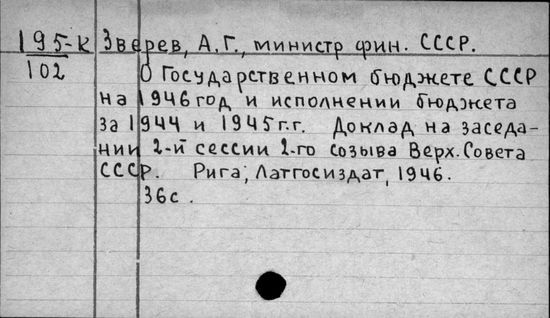 195-к Зверев, А.Г., министр фин. СССР.
102
О Государственном бюджете СССР
на 1946 год и исполнении бюджета
за 1944 и 1945 г.г. Доклад на заседа-
нии 2-й сессии 2-го созыва Верх. Совета
СССР. Рига, Латгосиздат, 1946.
36с.